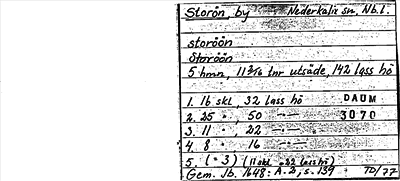 Storön by Nederkalix sn, Nb. l.
storöön
Storöön
5 hmn, 11 3/16 tnr utsäde, 142 lass hö
1. 16 skl, 32 lass hö DAUM
2. 25 " , 50 —"— 3070
3. 11 " , 22 —"—
4. 8 " 16 —"—
5. (= 3) (11 skl - 22 lass hö)
Gem. Jb. 1648: A. D, s. 139 TD/77